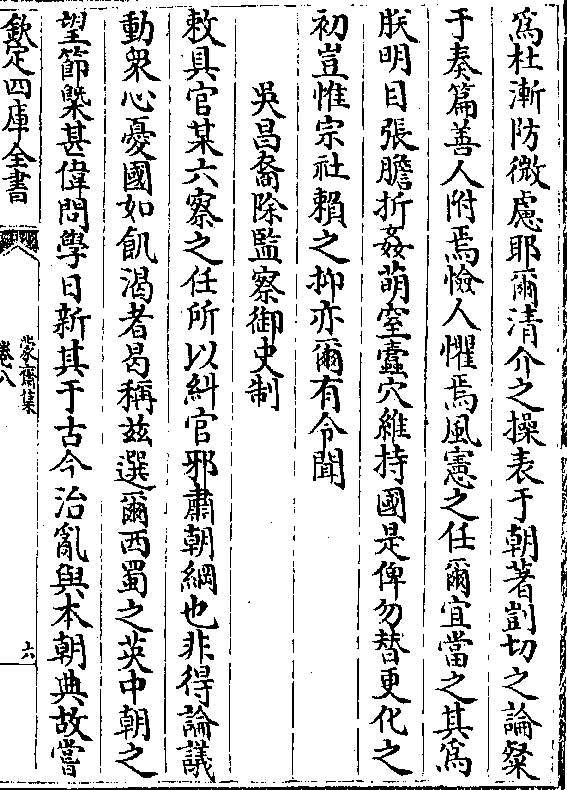 爲杜漸防微慮耶爾清介之操表于朝著剴切之論粲
于奏篇善人附焉憸人懼焉風憲之任爾宜當之其爲
朕明目張膽折姦萌窒蠧穴維持國是俾勿替更化之
初豈惟宗社賴之抑亦爾有令聞
吳昌裔除監察御史制
敕具官某六察之任所以糾官邪肅朝綱也非得論議
動衆心憂國如飢渴者曷稱兹選爾西蜀之英中朝之
望節槩甚偉問學日新其于古今治亂與本朝典故嘗
欽定四庫全書
蒙齋集
卷八
六